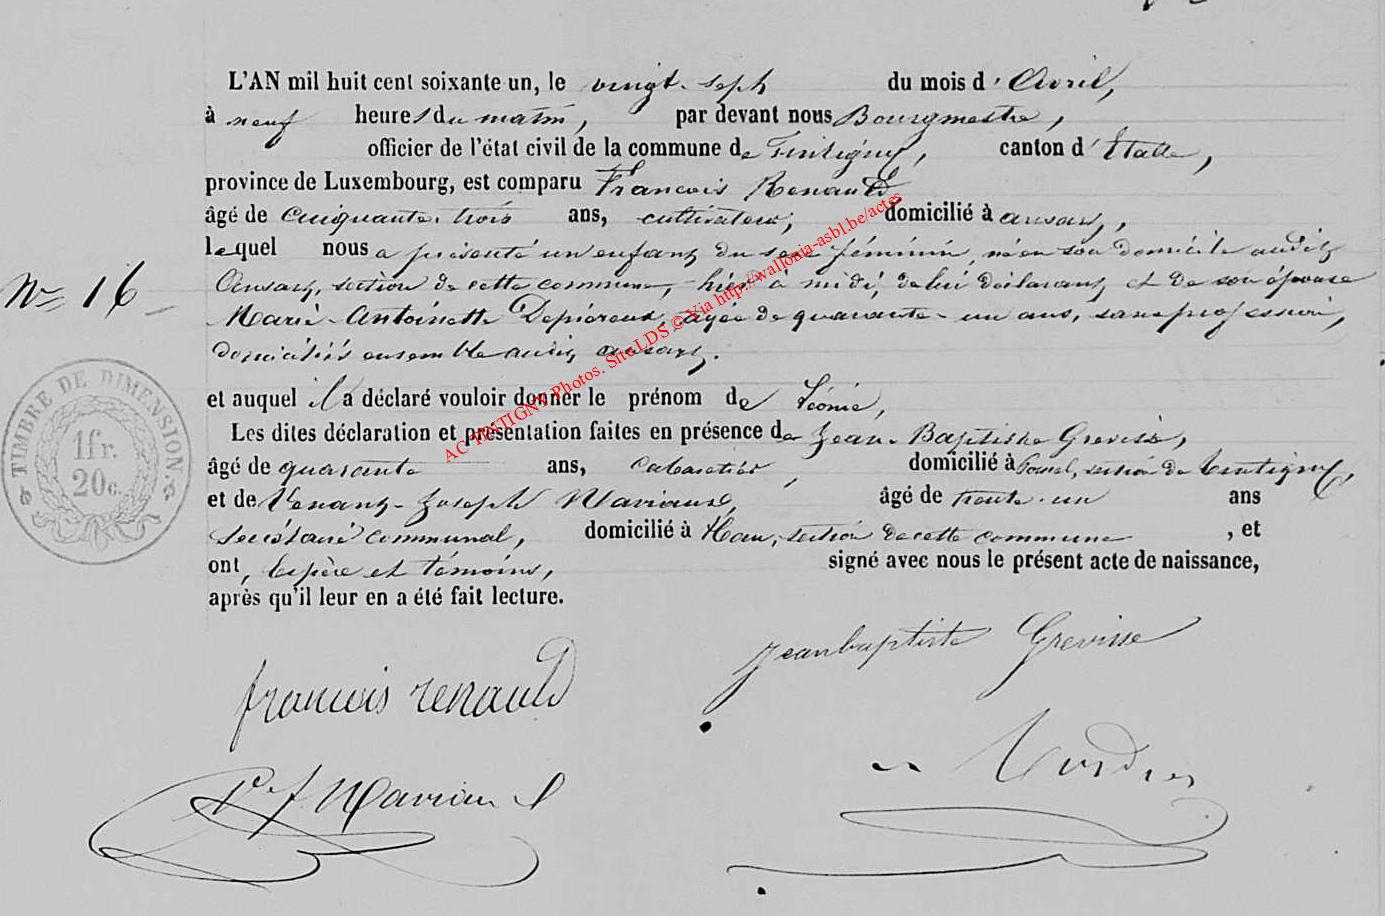 L'AN mil huit cent soixante un, le vingt-sept du mois d'Avril,
à neuf heures du matin, par devant nous Bourgmestre,
officier de l'état civil de la commune de Tintigny, canton d'Etalle,
province de Luxembourg, est comparu François Renauld,
âgé de cinquante-trois ans, cultivateur, domicilié à ansart,
lequel nous a présenté un enfant du sexe féminin, né en son domicile audit
Nº 16
Ansart, section de cette commune, hier à midi, de lui déclarant, et de son épouse
Marie-Antoinette Depiéreux, agée de quarante-un ans, sans profession,
domiciliés ensemble audit ansart.
et auquel il a déclaré vouloir donner le prénom de Léonie,
Les dites déclaration et présentation faites en présence de Jean-Baptiste Grevisse,
âgé de quarante ans, cabaretier, domicilié à section de Tintigny,
et de Venant-Joseph âgé de trente-un ans
Secrétaire communal, domicilié à Han, section de cette commune, et
ont, le père et témoins, signé avec nous le présent acte de naissance,
après qu'il leur en a été fait lecture.
TIMBRE DE DIMENSION.
1fr.
20c.
AC TINTIGNY Photos. Site LDS © Via http://wallonia-asbl.be/actes
jeanbaptiste Grevisse
francois renauld